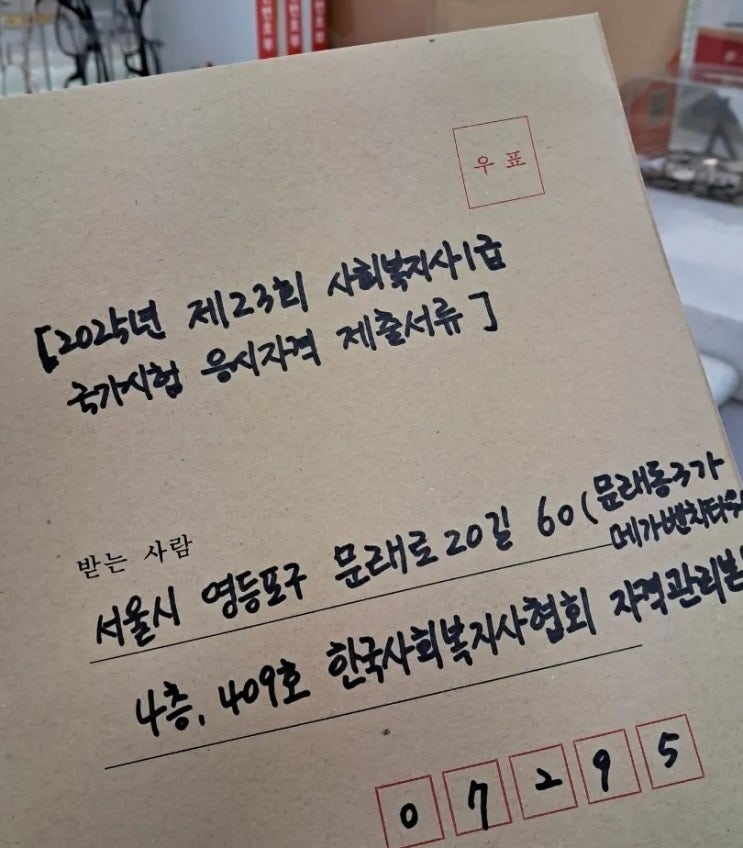 우표
[2025년 제23회 사회복지사1급
국가시험 응시자격 제출서류]
받는 사람
서울시 영등포구 문래로20길 60(문래동3가
메가벤처타워
4층, 409호 한국사회복지사협회 자격관리본
07295